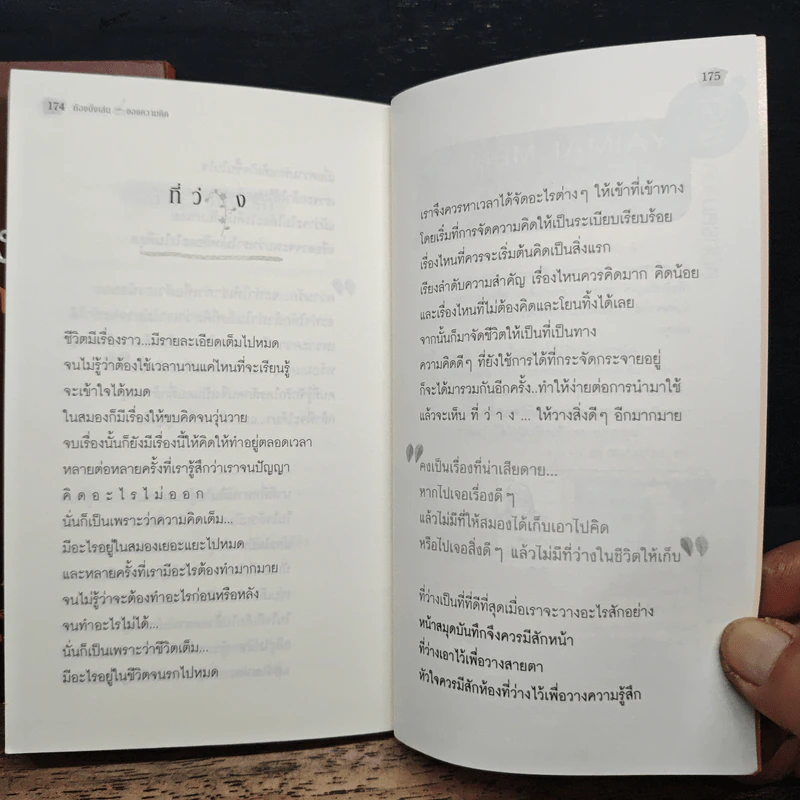 174 ห้องนั่งเล่น – ของความคิด
ที่ ว่ า ง
ชีวิตมีเรื่องราว...มีรายละเอียดเต็มไปหมด
จนไม่รู้ว่าต้องใช้เวลานานแค่ไหนที่จะเรียนรู้
จะเข้าใจได้หมด
ในสมองก็มีเรื่องให้ขบคิดจนวุ่นวาย
จบเรื่องนั้นก็ยังมีเรื่องนี้ให้คิดให้ทำอยู่ตลอดเวลา
หลายต่อหลายครั้งที่เรารู้สึกว่าเราจนปัญญา
คิ ด อ ะ ไ ร ไ ม่ อ อ ก
นั่นก็เป็นเพราะว่าความคิดเต็ม...
มีอะไรอยู่ในสมองเยอะแยะไปหมด
และหลายครั้งที่เรามีอะไรต้องทำมากมาย
จนไม่รู้ว่าจะต้องทำอะไรก่อนหรือหลัง
จนทำอะไรไม่ได้...
นั่นก็เป็นเพราะว่าชีวิตเต็ม...
มีอะไรอยู่ในชีวิตจนรกไปหมด
175
เราจึงควรหาเวลาได้จัดอะไรต่างๆ ให้เข้าที่เข้าทาง
โดยเริ่มที่การจัดความคิดให้เป็นระเบียบเรียบร้อย
เรื่องไหนที่ควรจะเริ่มต้นคิดเป็นสิ่งแรก
เรียงลำดับความสำคัญ เรื่องไหนควรคิดมาก คิดน้อย
และเรื่องไหนที่ไม่ต้องคิดและโยนทิ้งได้เลย
จากนั้นก็มาจัดชีวิตให้เป็นที่เป็นทาง
ความคิดดีๆ ที่ยังใช้การได้ที่กระจัดกระจายอยู่
ก็จะได้มารวมกันอีกครั้ง..ทำให้ง่ายต่อการนำมาใช้
แล้วจะเห็น ที่ ว่ า ง ... ให้วางสิ่งดีๆ อีกมากมาย
คงเป็นเรื่องที่น่าเสียดาย...
หากไปเจอเรื่องดีๆ
แล้วไม่มีที่ให้สมองได้เก็บเอาไปคิด
หรือไปเจอสิ่งดีๆ แล้วไม่มีที่ว่างในชีวิตให้เก็บ
ที่ว่างเป็นที่ที่ดีที่สุดเมื่อเราจะวางอะไรสักอย่าง
หน้าสมุดบันทึกจึงควรมีสักหน้า
ที่ว่างเอาไว้เพื่อวางสายตา
หัวใจควรมีสักห้องที่ว่างไว้เพื่อวางความรู้สึก